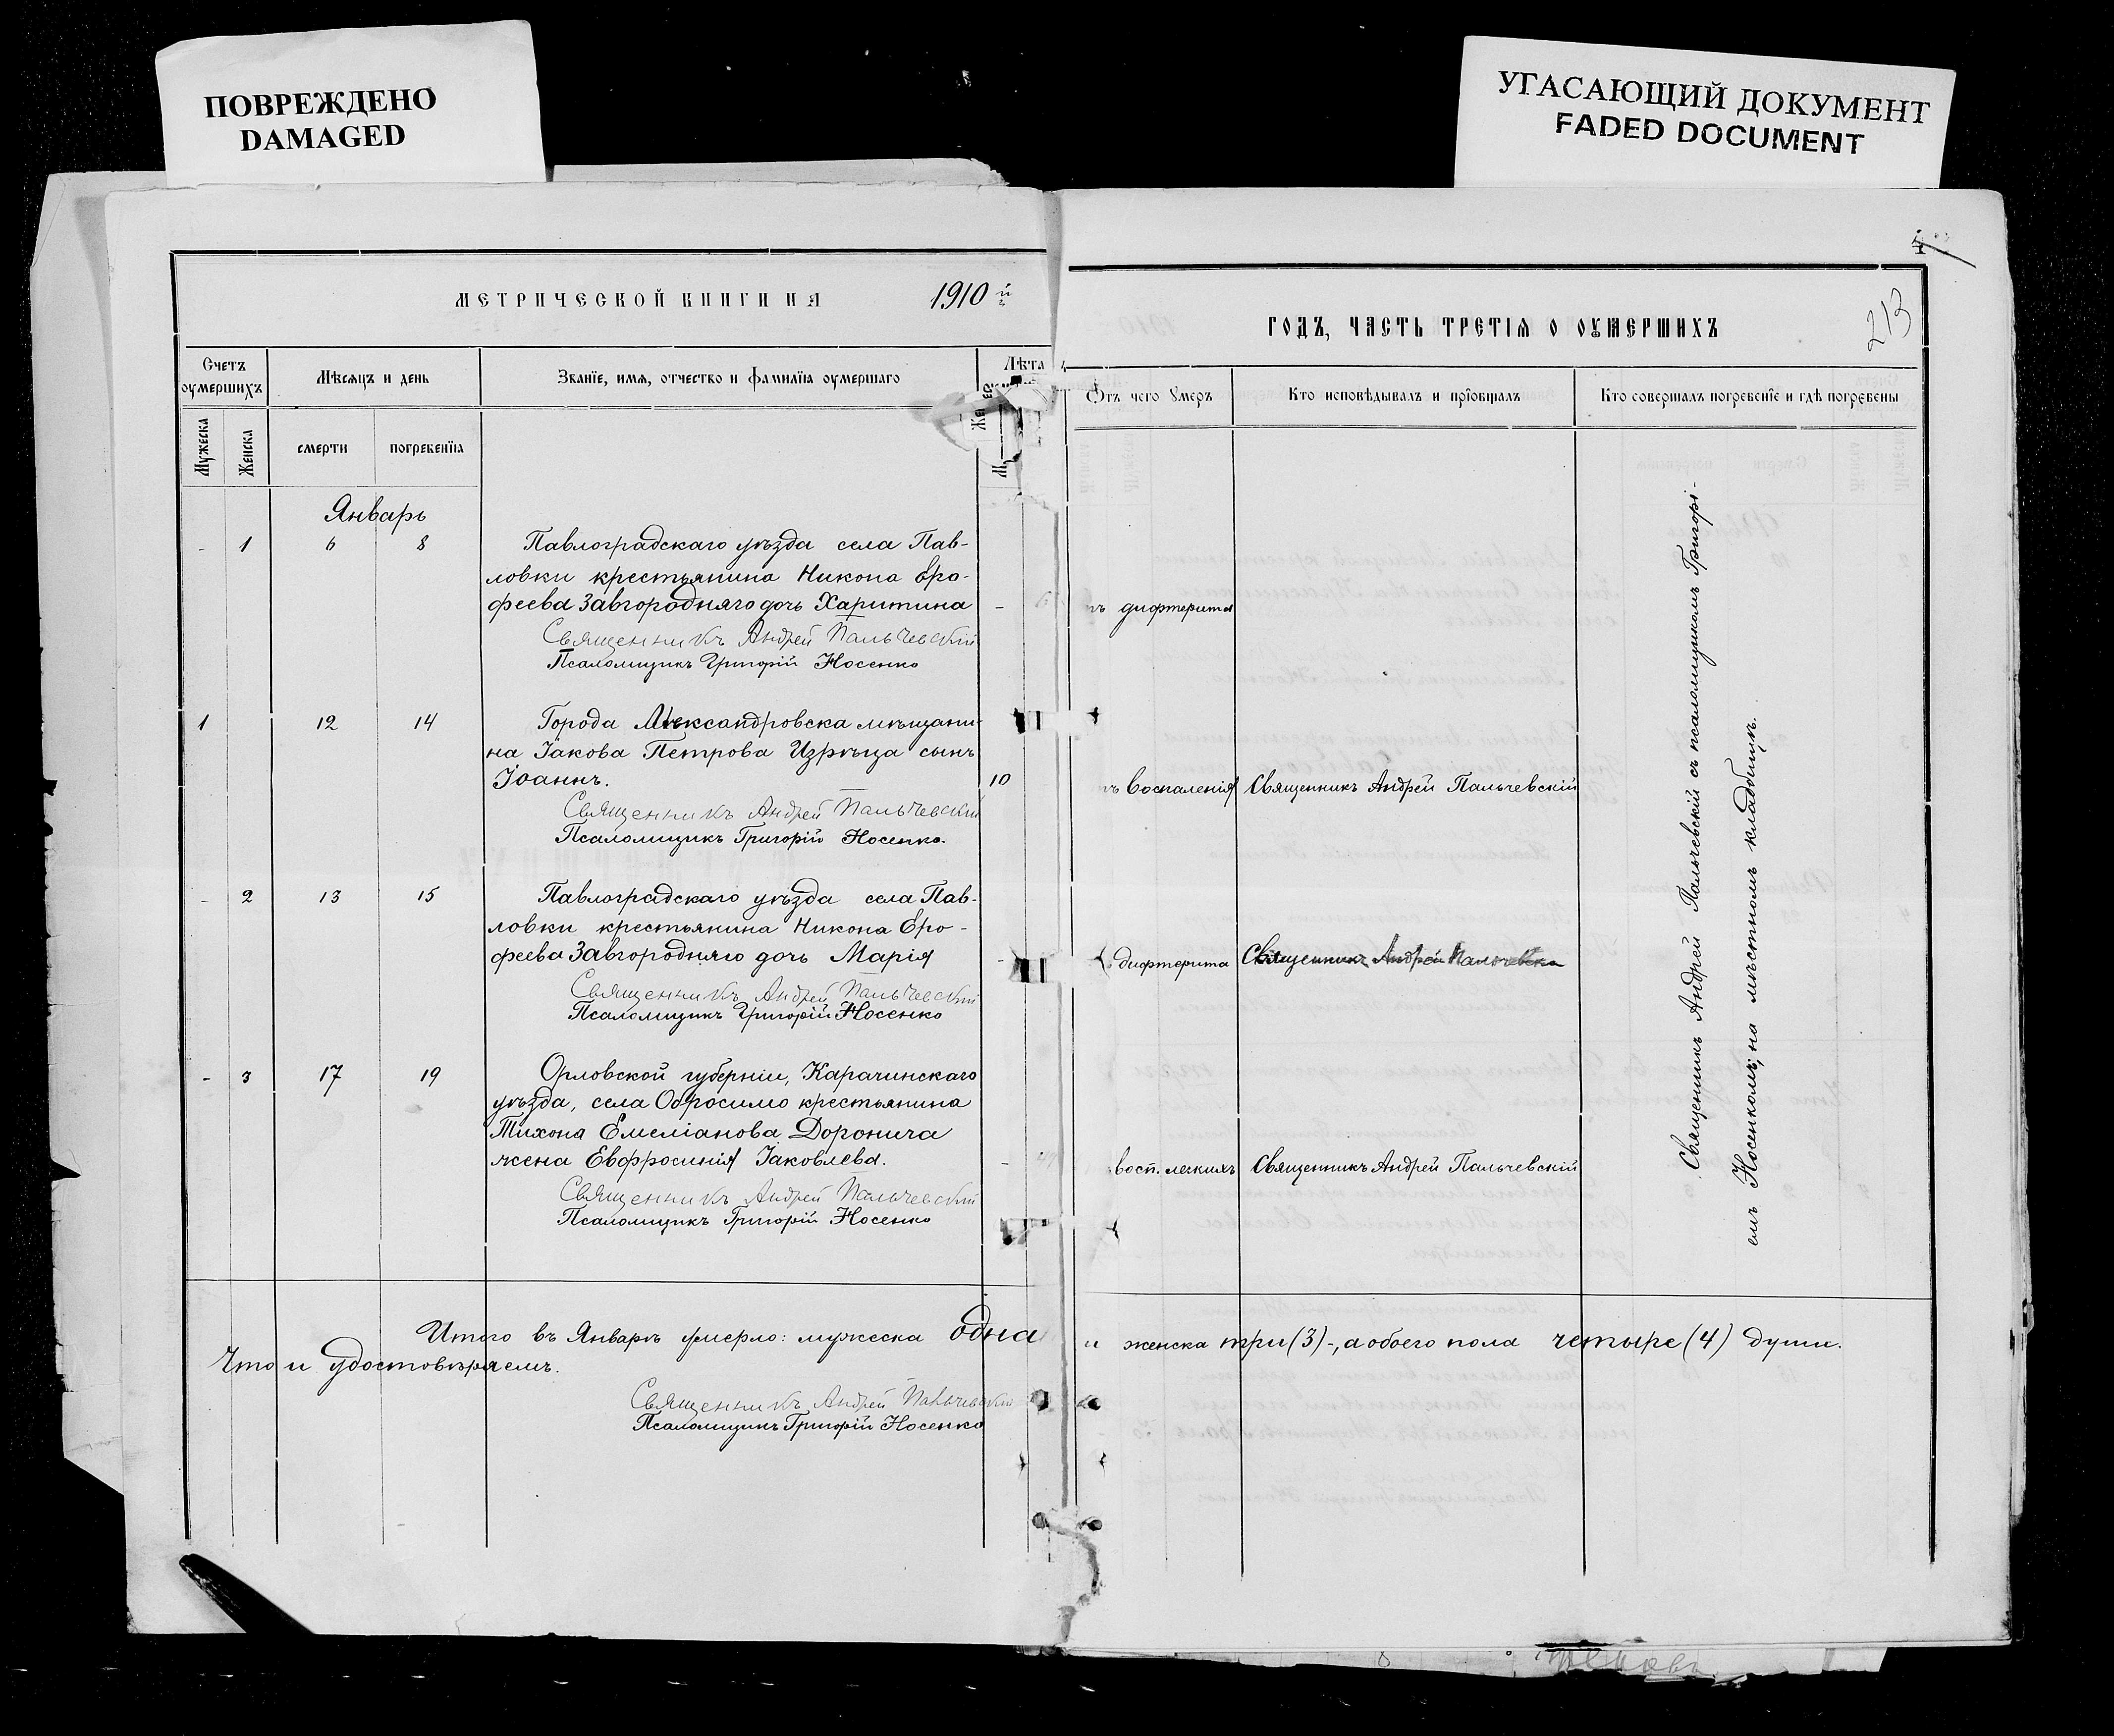 ПОВРЕЖДЕНО
DAMAGED
УГАСАЮЩИЙ ДОКУМЕНТ
FADED DOCUMENT
МЕТРИЧЕСКОЙ КНИГИ НА 1910 й
Счетъ оумершихъ
Мѣсяцъ и день
Званїе, имя, отчество и фамилїя оумершаго
Лѣта
Мужеска
Женска
смерти
погребенїя
Январь
- 1 6 8 Павлоградскаго уѣзда села Пав-
ловки крестьянина Никона Еро-
феева Завгородняго дочь Харитина -
Священникъ Андрей Пальчевскій
Псаломщикъ Григорій Носенко
1 12 14 Города Александровска мѣщани-
на Іакова Петрова Изрѣца сынъ
Іоаннъ. 10
Священникъ Андрей Пальчевскій
Псаломщикъ Григорій Носенко.
- 2 13 15 Павлоградскаго уѣзда села Пав-
ловки крестьянина Никона Еро-
феева Завгородняго дочь Марія
Священникъ Андрей Пальчевскій
Псаломщикъ Григорій Носенко
- 3 17 19 Орловской губерніи, Карачинскаго
уѣзда, села Обросимо крестьянина
Тихона Емеліанова Доронича
жена Евфросинія Іаковлева.
Священникъ Андрей Пальчевскій
Псаломщикъ Григорій Носенко
Итого въ Январѣ умерло: мужеска одна
Что и удостовѣряемъ.
Священникъ Андрей Пальчевскій
Псаломщикъ Григорій Носенко
213
ГОДЪ, ЧАСТЬ ТРЕТІЯ О ОУМЕРШИХЪ
Отъ чего умеръ
Кто исповѣдывалъ и прїобщалъ
Кто совершалъ погребенїе и гдѣ погребены
дифтерита
воспаленія Священникъ Андрей Пальчевскій
дифтерита Священникъ Андрей Пальчевскій
восп. легкихъ Священникъ Андрей Пальчевскій
Священникъ Андрей Пальчевскій съ псаломщикомъ Григорі-
емъ Носенкомъ, на мѣстномъ кладбищѣ.
и женска три (3) -, а обоего пола четыре (4) души.